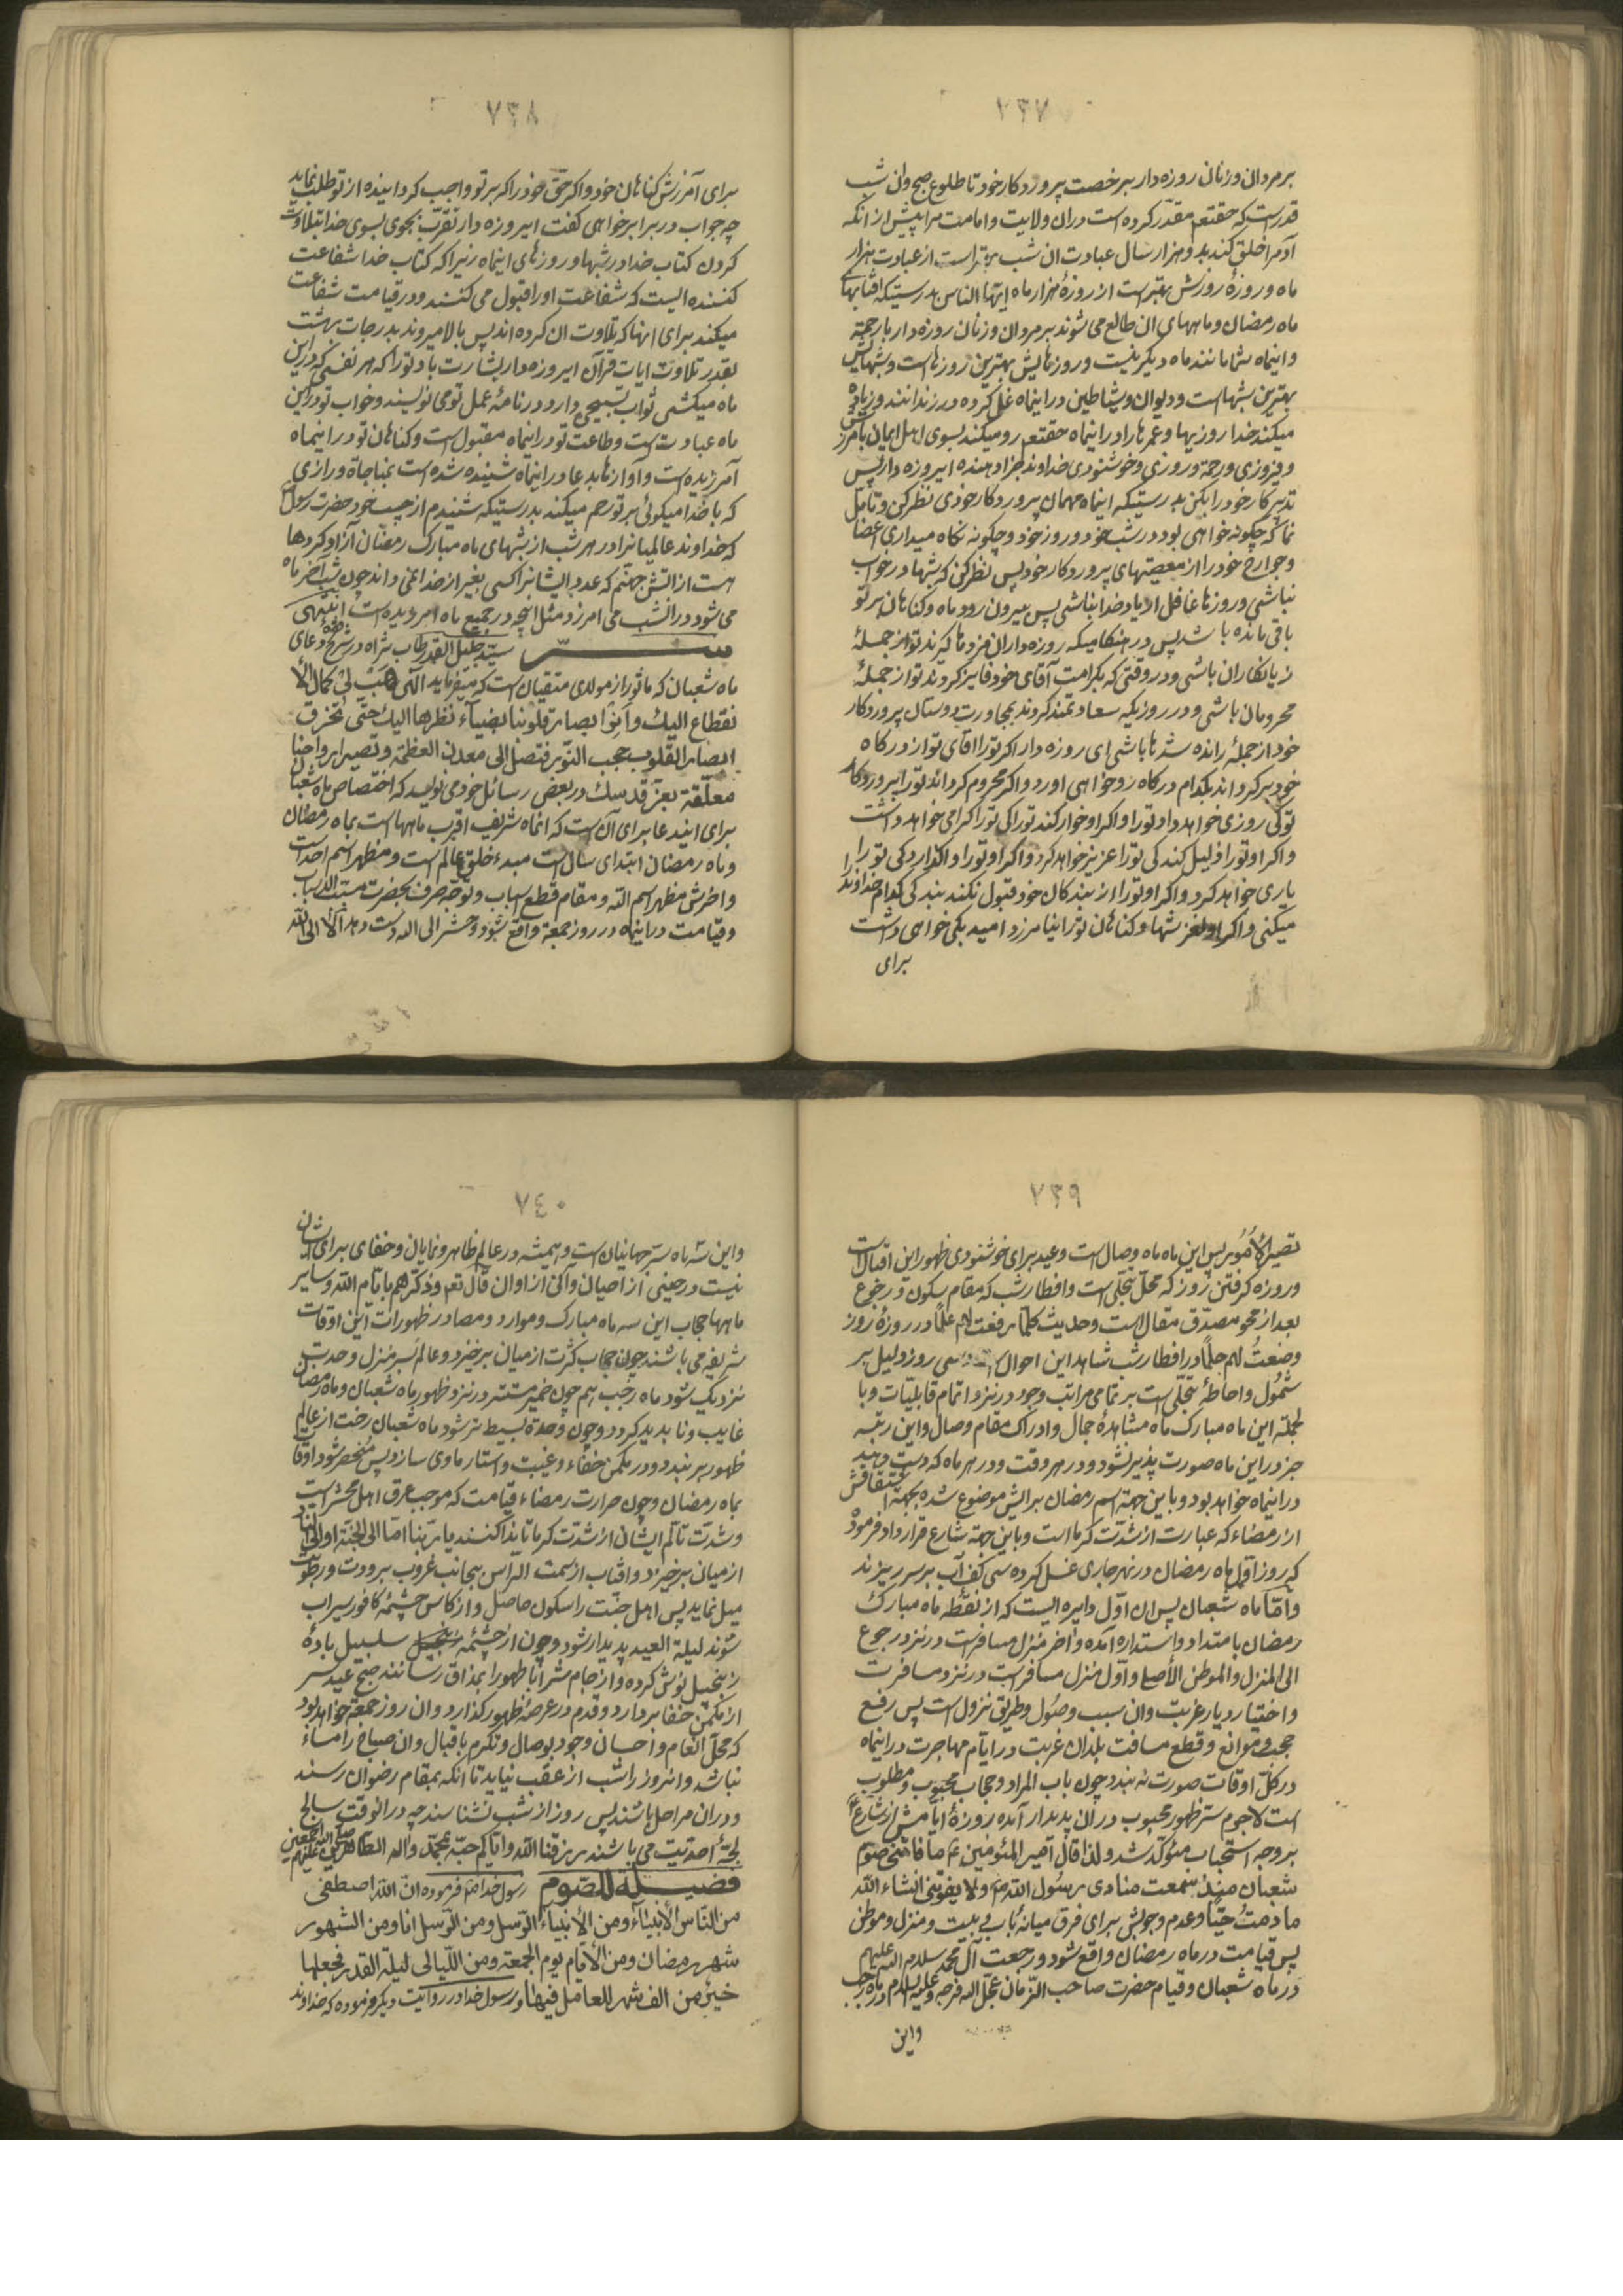 ٧٣٧
بر مردان و زنان روزه دار برخصت پروردکار خود تا طلوع صبح وان شب
قدر است که حقتعم مقدّر کرده است دران ولایت و امامت مرا پیش از انکه
آدم را خلق کند بدو هزار سال عبادت ان شب بهتر است از عبادت هزار
ماه و روزهٔ روزش بهتر است از روزهٔ هزار ماه ایها الناس بدرستیکه افتابهای
ماه رمضان و ماههای ان طالع می شوند بر مردان و زنان روزه دار با رحمة
و اینماه شما مانند ماه دیکر نیست و روزهایش بهترین روزها است و شبهایش
بهترین شبها است و دیوان و شیاطین در اینماه غل کرده در زندانند و زیاد
میکند خدا روزیها و عمرها را در اینماه حقتعم رو میکند بسوی اهل ایمان بآمرزش
و فیروزی و رحمة و روزی و خوشنودی خداوند جزا دهنده ایروزه دار پس
تدبیر کار خود را بکن بدرستیکه اینماه مهمان پروردکار خودی نظر کن و تأمّل
نما که چکونه خواهی بود در شب خود و روز خود و چکونه نکاه میداری اعضا
و جوارح خود را از معصیتهای پروردکار خود پس نظر کن که شبها در خواب
نباشی و روزها غافل از یاد خدا نباشی پس بیرون رود ماه و کناهان بر تو
باقی مانده باشد پس در هنکامیکه روزه داران مزدها کیرند تو از جملهٔ
زیانکاران باشی و در وقتی که بکرامت آقای خود فایز کردند تو از جملهٔ
محرومان باشی و در روزیکه سعادتمند کردند بمجاورت دوستان پروردکار
خود از جملهٔ رانده شدها باشی ای روزه دار اکر تو را اقای تو از درکاه
خود بر کرداند بکدام درکاه رو خواهی اورد و اکر محروم کرداند تو را پروردکار
تو کی روزی خواهد داد تو را و اکر او خوار کند تو را کی تو را کرامی خواهد داشت
و اکر او تو را ذلیل کند کی تو را عزیز خواهد کرد و اکر او تو را واکذارد کی تو را
یاری خواهد کرد و اکر او تو را از بندکان خود قبول نکند بندکی کدام خداوند را
میکنی و اکر او لغزشها و کناهان تو را نیامرزد امید بکی خواهی داشت
برای
٧٣٨
برای آمرزش کناهان خود و اکر حقّ خود را که بر تو واجب کردانیده از تو طلب نماید
چه جواب در برابر خواهی کفت ایروزه دار تقرّب بجوی بسوی خدا بتلاوت
کردن کتاب خدا در شبها و روزهای اینماه زیرا که کتاب خدا شفاعت
کننده ایست که شفاعت او را قبول می کنند و در قیامت شفاعت
میکند برای انها که تلاوت ان کرده اند پس بالا میروند بدرجات بهشت
بقدر تلاوت ایات قرآن ایروزه دار بشارت باد تو را که هر نفسی که در این
ماه میکشی ثواب تسبیحی دارد و در نامهٔ عمل تو می نویسند و خواب تو در این
ماه عبادت است و طاعت تو در اینماه مقبول است و کناهان تو در اینماه
آمرزیده است و آوازها بدعا در اینماه شنیده شده است بمناجاة و رازی
که با خدا میکوئی بر تو رحم میکند بدرستیکه شنیدم از حبیب خود حضرت رسول
که خداوند عالمیانرا در هر شب از شبهای ماه مبارک رمضان آزاد کردها
هست از اتش جهنّم که عدد ایشانرا کسی بغیر از خدا نمی داند چون شب آخر ماه
می شود در انشب می امرزد مثل انچه در جمیع ماه امرزیده است انتهی
ســـرّ سیّد جلیل القدر طاب ثراه در شرح فقرهٔ دعای
ماه شعبان که ماثور از مولای متقیان است که میفرماید الٓهی هَبْ لی کمال الا
نقطاع الیك وانر ابصار قلوبنا بضیآء نظرها الیك حتّی تخرق
ابصار القلوب حجب النّور فتصل الی معدن العظمة وتصیر ارواحنا
معلّقة بعز قدسك در بعض رسائل خود می نویسد که اختصاص ماه شعبان
برای ایندعا برای آن است که انماه شریف اقرب ماهها است بماه رمضان
و ماه رمضان ابتدای سال است مبدء خلق عالم است و مظهر اسم احد است
و اخرش مظهر اسم اللّه و مقام قطع اسباب و توجّه صرف بحضرت مسبّب الاسباب
و قیامت در اینماه در روز جمعه واقع شود و حشر الی اللّه دست دهد الا الی اللّه
٧٣٩
تصیر الاُمُور پس این ماه ماه وصال است و عید برای خوشنودی ظهور این اقبال است
و روزه کرفتن روز که محلّ تجلّی است و افطار شب که مقام سکون و رجوع
بعد از محو مصدّق مقال است و حدیث کلّما رفعت لهم علماً در روزهٔ روز
وضعتُ لهم حلماً در افطار شب شاهد این احوال است و سی روز دلیل بر
شمُول و احاطهٔ تجلّی است بر تمامی مراتب وجود در نزد اتمام قابلیّات و با
لجمله این ماه مبارك ماه مشاهدهٔ جمال و ادراك مقام وصال و این رتبه
جز در این ماه صورت پذیر نشود و در هر وقت و در هر ماه که دست دهد
در اینماه خواهد بود و باین جهة اسم رمضان برایش موضوع شده بجهة اشتقاقش
از رمضاء که عبارت از شدّت کرما است و باین جهة شارع قرار داد فرموده
که روز اوّل ماه رمضان در نهر جاری غسل کرده سی کف آب بر سر ریزند
و امّا ماه شعبان پس ان اوّل دایره ایست که از نقطه ماه مبارك
رمضان بامتداد و استداره آمده و اخر منزل مسافر است در نزد رجوع
الی المنزل و الموطن الأصلی و اوّل منزل مسافر است در نزد مسافرت
و اختیار دیار غربت و ان سبب وصُول و طریق نزول است پس رفع
حجب و موانع و قطع مسافت بلدان غربت در ایّام مهاجرت در اینماه
در کلّ اوقات صورت نه بندد چون باب المراد و حجاب محبوب و مطلوب
است لاجرم ستر ظهور محبوب در ان پدیدار آمده روزهٔ ایّامش از شارع ع
بر وجه استحباب مؤکّد شد و لذا قال امیر المؤمنین ع ما فاتَنی صَوم
شعبان منذ سمعت منادی رسُول اللّه ص ولا یفوتنی انشاء اللّه
مادمتُ حیّا و عدم وجوبش برای فرق میانهٔ باب و بیت و منزل و موطن
پس قیامت در ماه رمضان واقع شود و رجعت آل محمّد سلام اللّه علیهم
در ماه شعبان و قیام حضرت صاحب الزّمان عجّل اللّه فرجه و علیه السلام در ماه رجب
واین
٧٤٠
و این سه ماه سرّ جهانیان است و همیشه در عالم ظاهر و نمایان و خفای برای شان
نیست در حینی از احیان و آنی از اوان قال تعم وذکّرهم بایّام اللّه و سایر
ماهها حجاب این سه ماه مبارك و موارد و مصادر ظهورات این اوقات
شریفه می باشند چون حجاب کثرت از میان برخیزد و عالم بسر منزل وحدت
نزدیک شود ماه رجب هم چون ضمیر مستتر در نزد ظهور ماه شعبان و ماه رمضان
غایب و ناپدید کردد و چون وحدة بسیط تر شود ماه شعبان رخت از عالم
ظهور بربندد و در مکمن خفاء و غیبت و استتار ماوی سازد پس منحصر شود اوقات
بماه رمضان و چون حرارت رمضاء قیامت که موجب عرق اهل محشر است
و شدّت تألّم ایشان از شدّت کرما تا ندا کنند یا ربّنا امّا الی الجنّة او الی النّار
از میان برخیزد و افتاب از سمت الراس بجانب غروب برودت و رطوبت
میل نماید پس اهل جنّت را سکون حاصل و از کاس چشمهٔ کافور سیراب
شوند لیلة العید پدیدار شود و چون از چشمهٔ سلسبیل بادهٔ
زنجبیل نوش کرده و از جام شراباً طهورا بمذاق رسانند صبح عید سر
از مکمن خفا بردارد و قدم در عرصهٔ ظهور کذارد و ان روز جمعه خواهد بود
که محلّ انعام و احسان وجود بوصال و تکرم باقبال و ان صباح را مساء
نباشد و انروز را شب از عقب نیاید تا انکه بمقام رضوان رسند
و دران مراحل باشند پس روز از شب نشناسند چه در انوقت سابح
لجّهٔ احدیّت می باشند رزقنا اللّه وایّاکم حبّه بمحمّد واله الطّاهرین صلّی اللّه علیهم اجمعین
فضیـلة الصّوم رسول خدا ص فرموده انّ اللّه اصطفی
من النّاس الأنبیآء ومن الأنبیاء الرّسل ومن الرّسل انا ومن الشهور
شهر رمضان ومن الأیّام یوم الجمعة ومن اللّیالی لیلة القدر فجعلها
خیر من الف شهر للعامل فیها و رسول خدا در روایت دیکر فرموده که خداوند